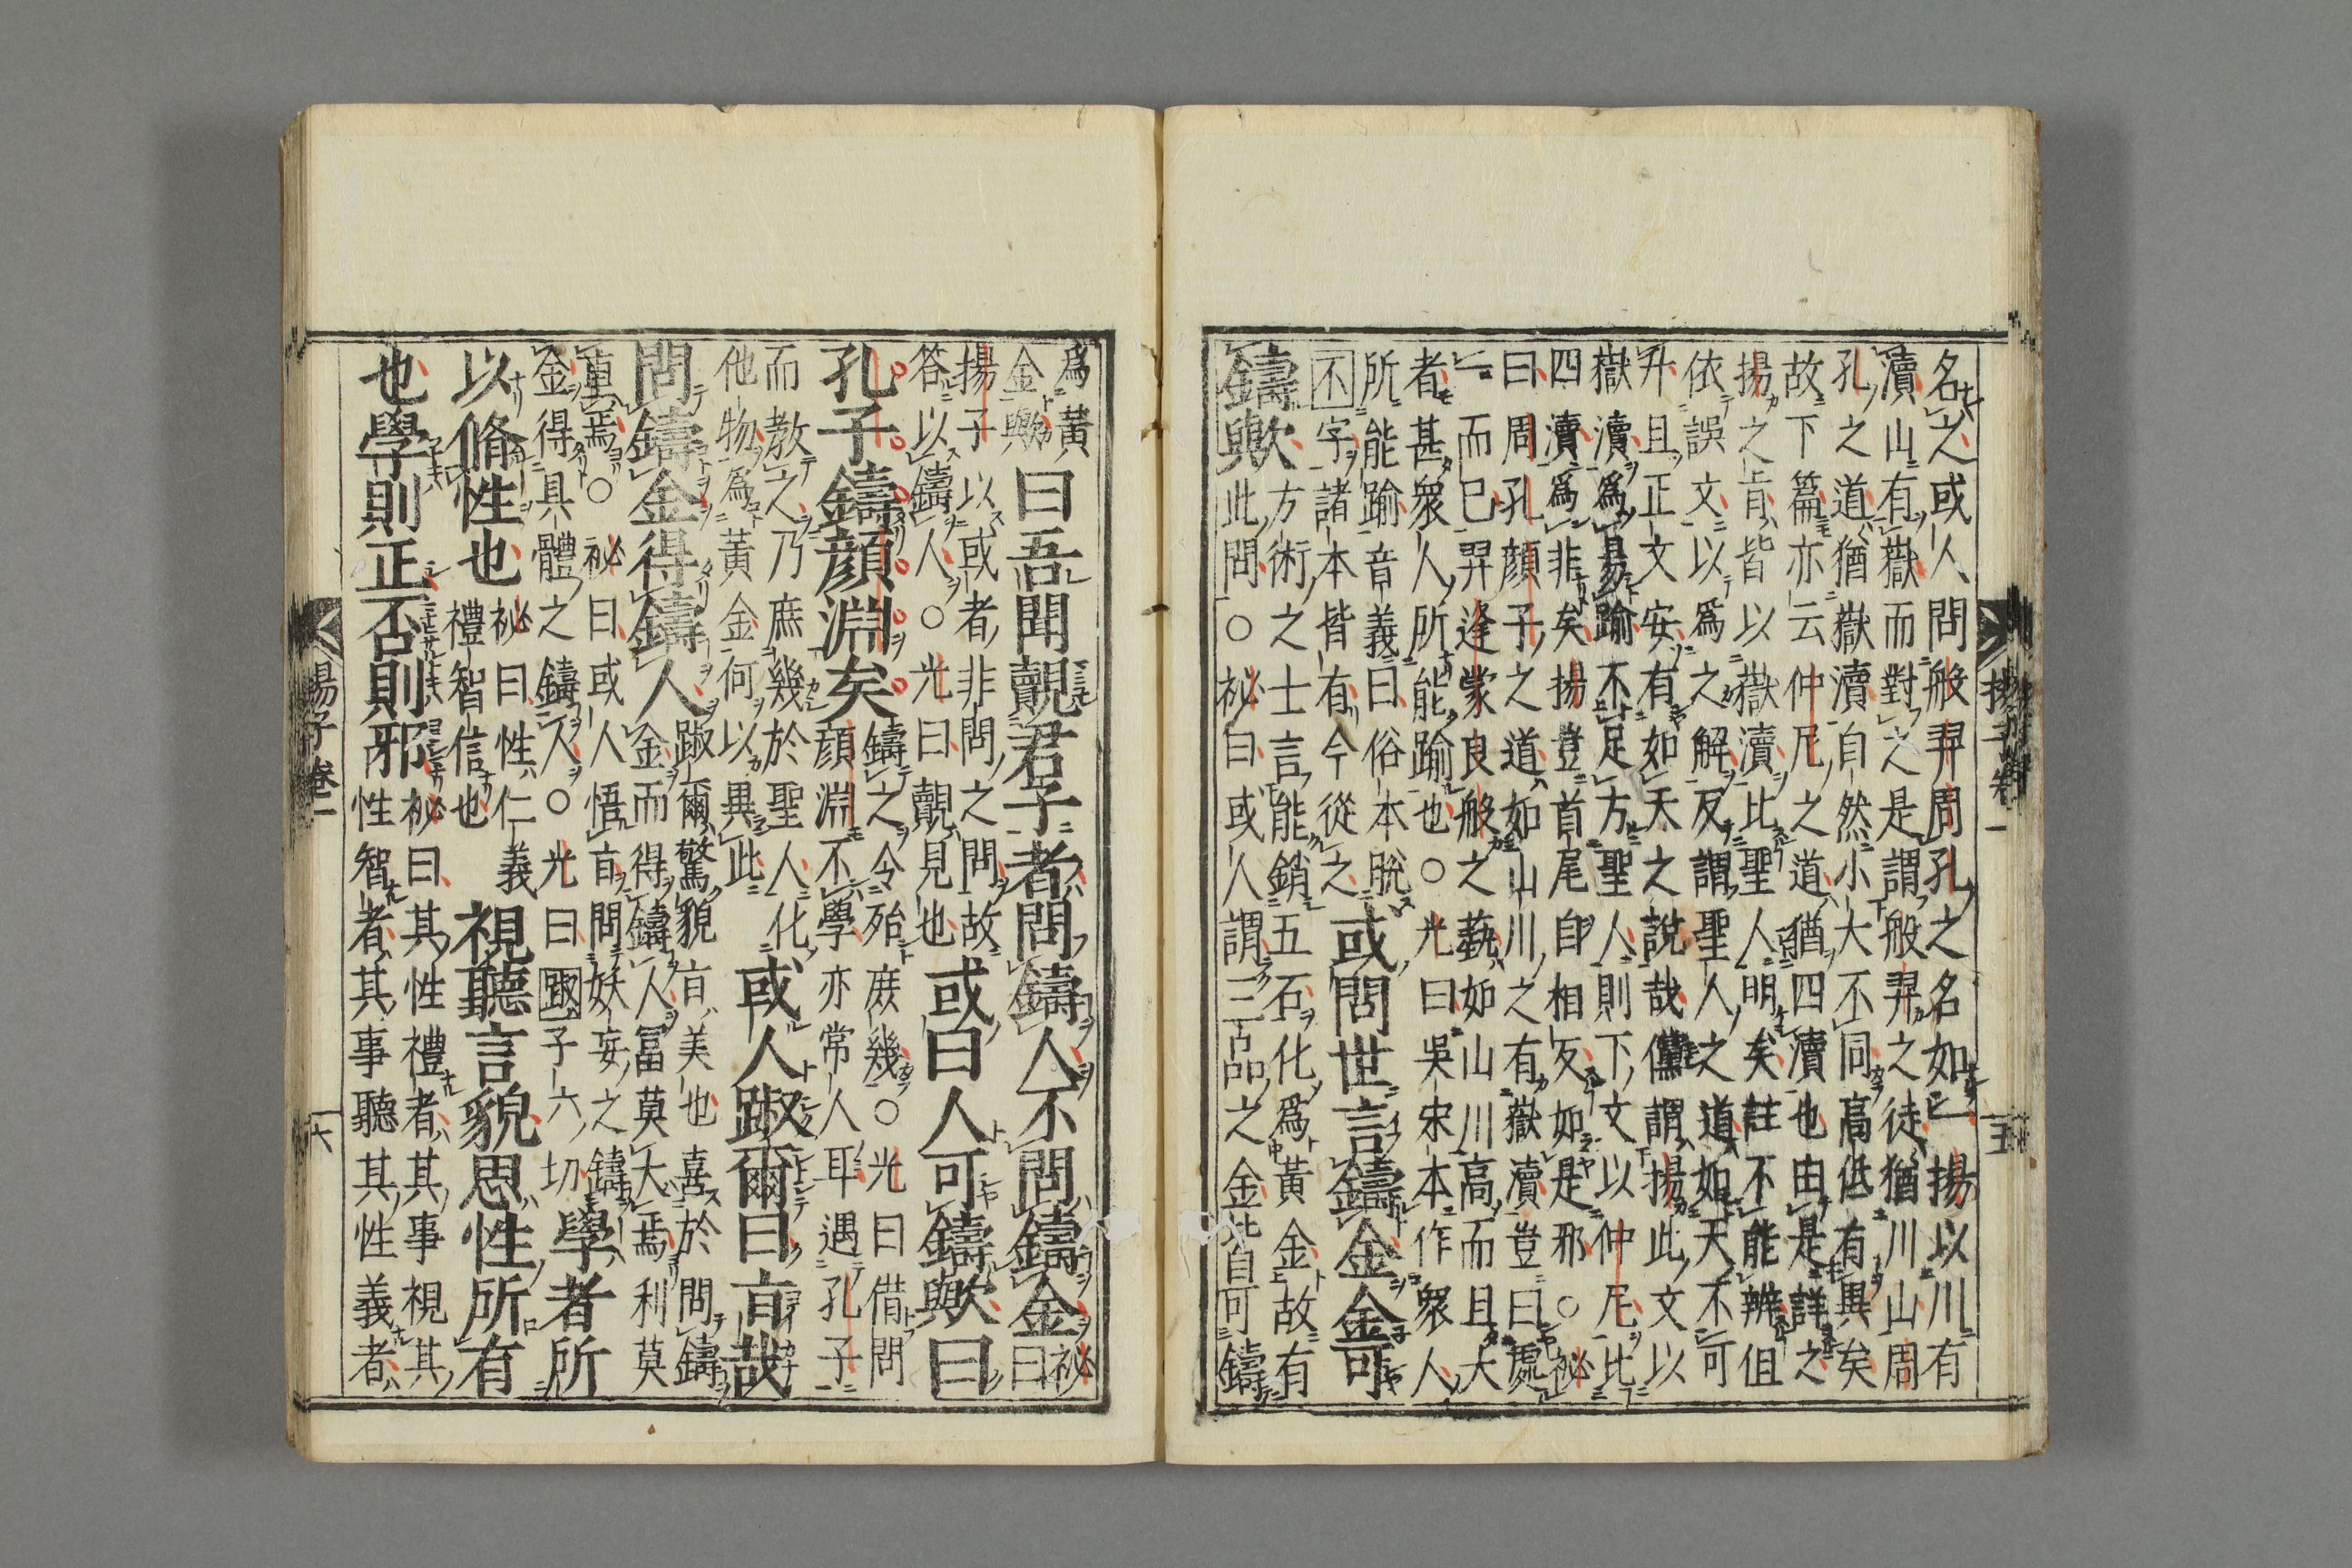 名之或人問般羿周孔之名如一揚以川有
瀆山有嶽而對之是謂般羿之徒猶川山周
孔之道猶嶽瀆自然小大不同高低有異矣
故下篇亦云仲尼之道猶四瀆也由是詳之
揚之㫖皆以嶽瀆比聖人明矣註不能辨俎
依誤文以爲之解反謂聖人之道如天不可
升且正文安有如天之說哉儻謂揚此文以
嶽瀆爲易踰不足方聖人則下文以仲尼比
四瀆爲非矣揚豈首尾自相反如是邪○祕
曰周孔顏子之道如山川之有嶽瀆豈曰處
一而已羿逢蒙良般之藝如山川高而且大
者甚衆人所能踰也○光曰吳宋本作衆人
所能踰音義曰俗本脫
不字諸本皆有今從之或問世言鑄金金可
方術之士言能銷五石化爲黃金故有
鑄歟此問○祕曰或人謂三品之金皆可鑄
爲黃
金歟曰吾聞覿君子者問鑄人不問鑄金祕曰
揚子以或者非問之問故
答以鑄人○光曰覿見也或曰人可鑄歟曰
孔子鑄顏淵矣鑄之令殆庶幾○光曰借問
顏淵不學亦常人耳遇孔子
而教之乃庶幾於聖人化
他物爲黃金何以異此或人踧爾曰㫖哉
問鑄金得鑄人踧爾驚貌㫖美也喜於問鑄
金而得鑄人冨莫大焉利莫
重焉○祕曰或人悟㫖問妖妄之鑄
金得具體之鑄人○光曰踧子六切學者所
以脩性也祕曰性仁義
禮智信也視聽言貌思性所有
也學則正否則邪祕曰其性禮者其事視其
性智者其事聽其性義者
揚子卷一
五
揚子卷一
六